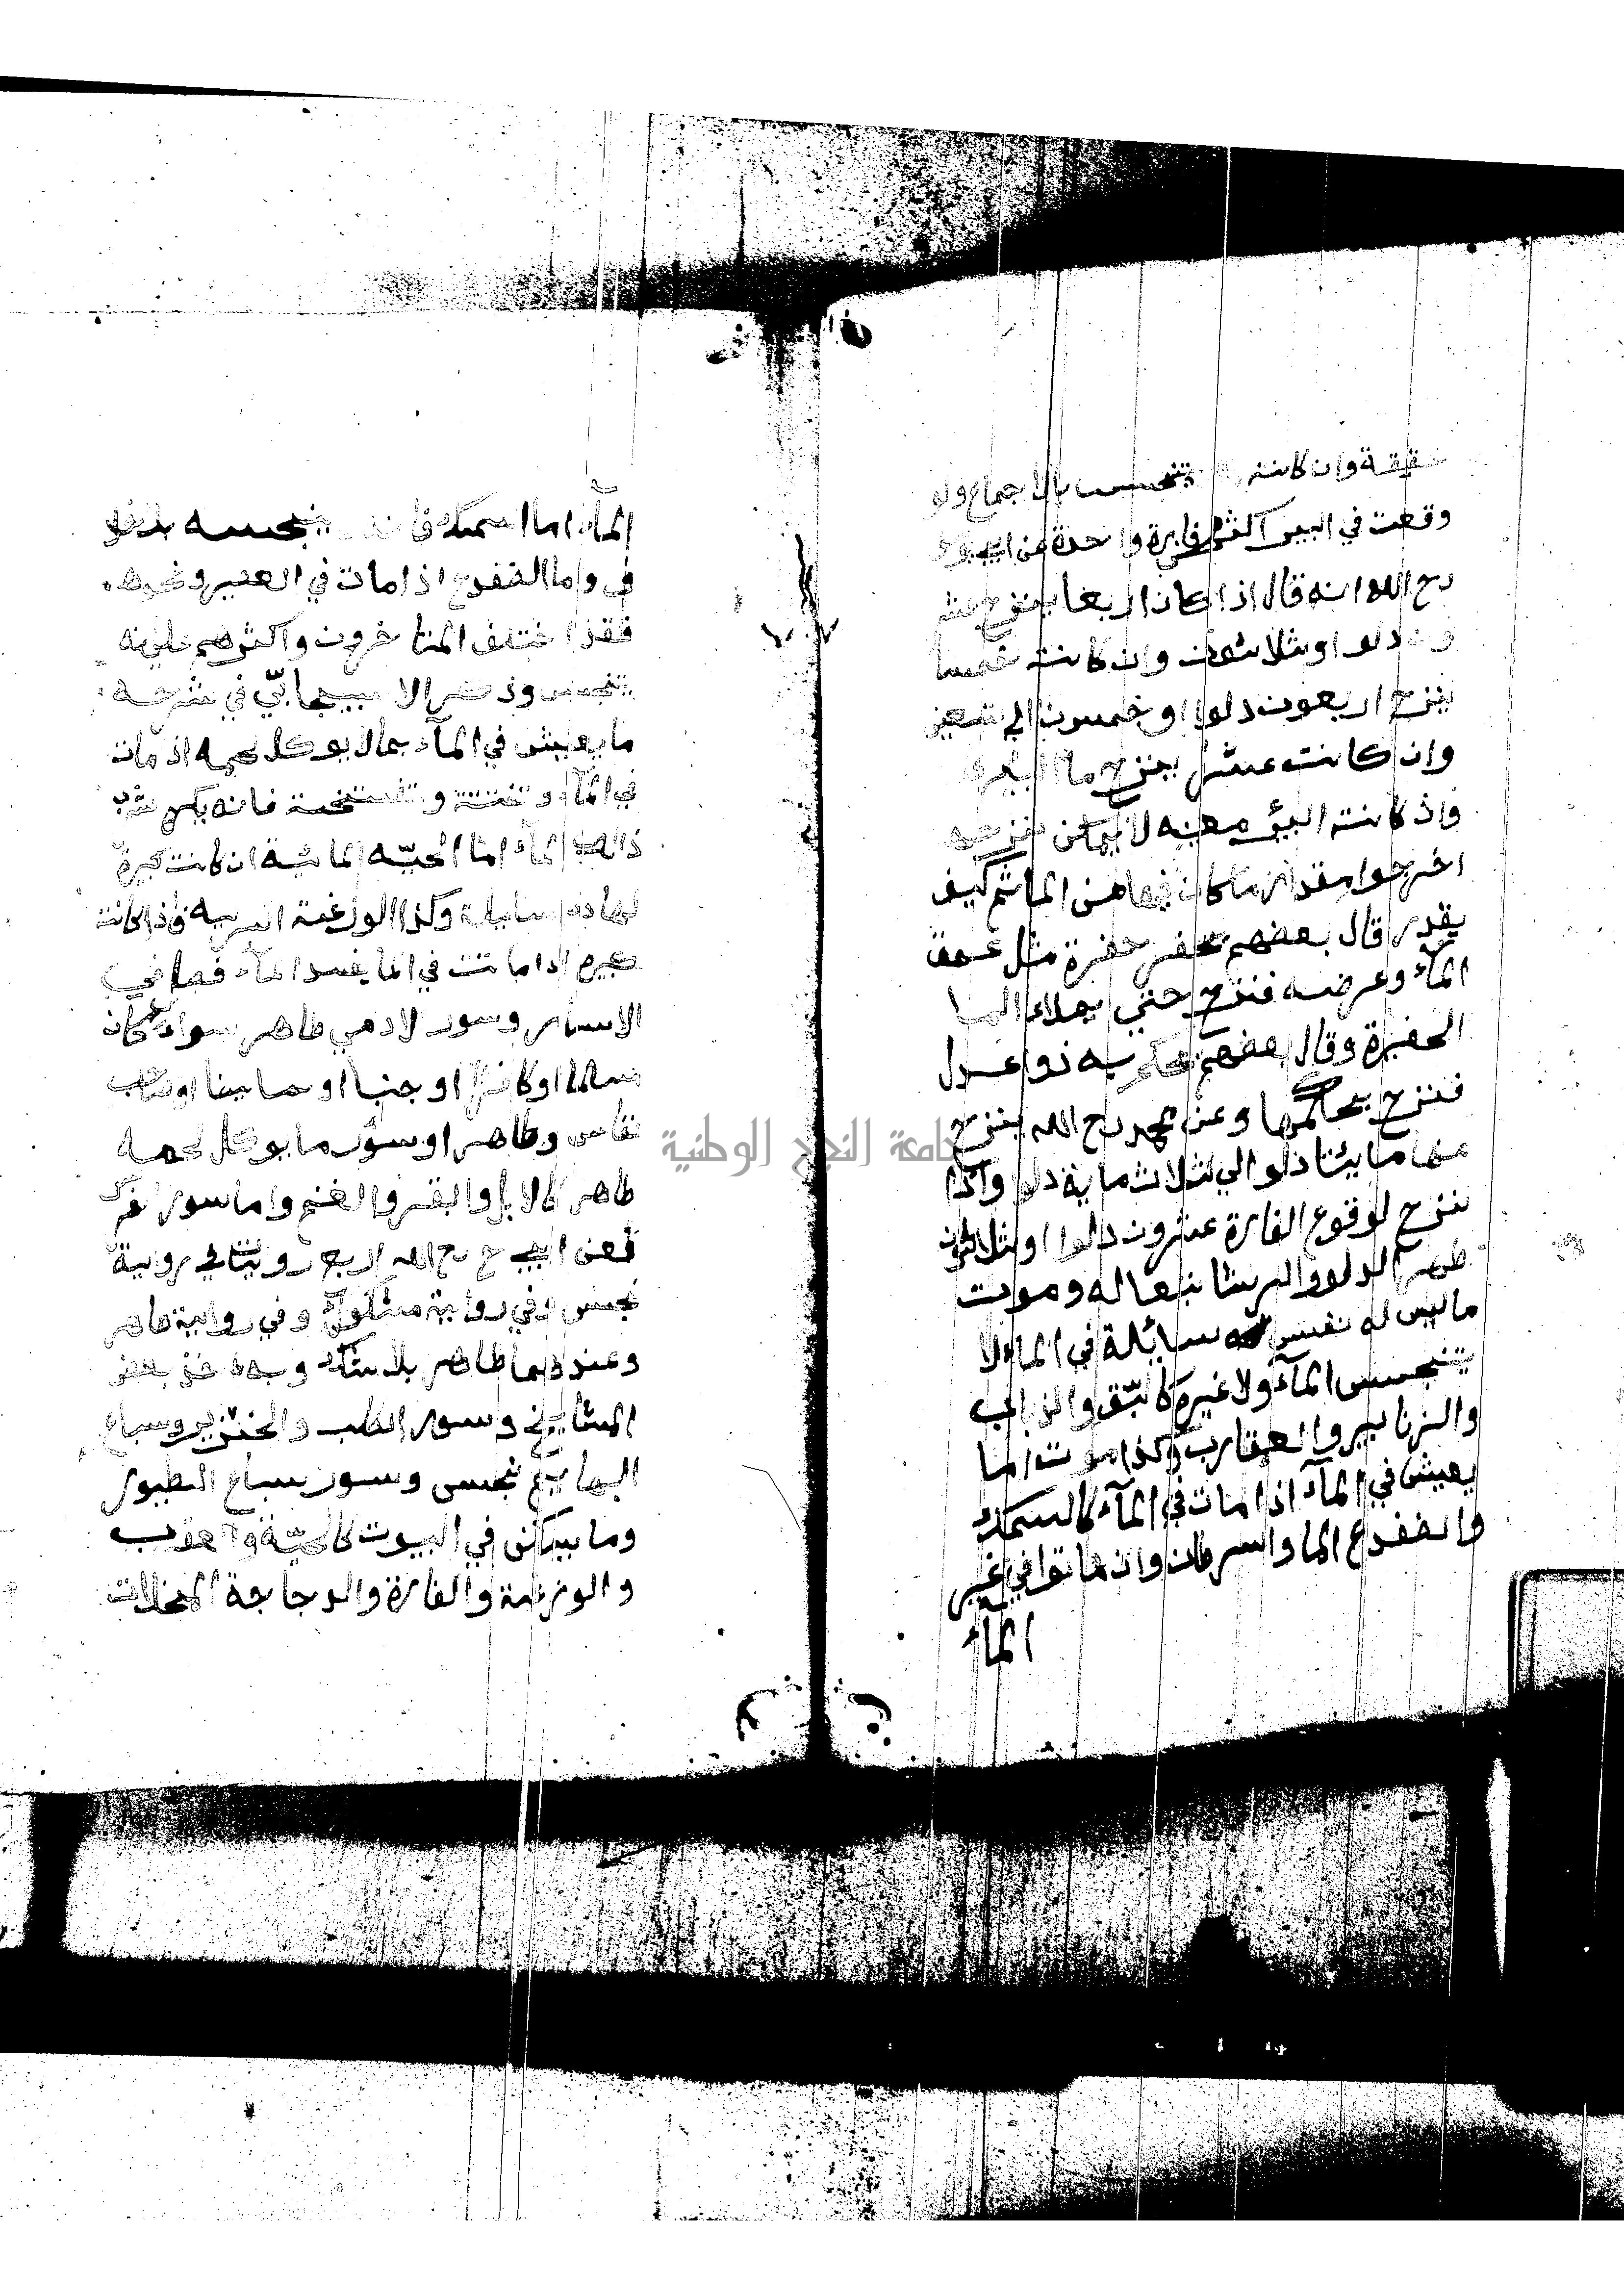 وان كانت تنجست بالاجماع ولو
وقعت في البير اكثر من فارة واحدة عن ابي يوسف
رح الله انه قال اذا كان اربعا ينزح عشر
دلوا وثلاثون وان كانت خمسا
ينزح اربعون دلوا او خمسون الي تسع
وان كانت عشرا ينزح ماء البير
واذ كانت البئر معينه لا يمكن نزحه
اخرجوا مقدار ما كان فيها من الما ثم كيف
يقدر قال بعضهم تحفر حفرة مثل عمق
المآء وعرضه فنزح حتي يملاء
الحفيرة وقال بعضهم يحكم به ذوا عدل
فنزح بحكمها وعن محمد رح الله ينزح
منها مايئتا دلو الي ثلاث ماية دلو واذا
ننزح لوقوع الفارة عشرون دلوا وثلاثون
طهر الدلو والرشا تبعا له وموت
ما ليس له نفس سايلة في الماء لا
يتنجس المآء ولا غيره كالبق والذباب
والزنابير والعقارب وكذا موت ما
يعيش في المآء اذا مات في المآء كالسمك
والضفدع الما والسرطان وان ماتوا في غير
المآء
المآء اما السمك
في واما الضفدع اذا مات في العصير ونحوه
فقد اختلف المتاخرون واكثرهم علي انه
يتنجس وذكر الاسبيجابي في شرحه
ما يعيش في المآء مما لا يوكل لحمه اذ مات
في المآء وتفتتة فانه يكره شرب
ذالك المآء اما الحيه المائية ان كانت كبيرة
لها دم سايلة وكذا الوزغة البريه واذ كانت
كبيره اذا ماتت في الما يفسد المآء فصل في
الاسآر وسور لادمي طاهر سواء كان
مسلما او كافرا او جنبا او حايضا او
نفاس وطاهر او سؤر ما يوكل لحمه
طاهر كالابل والبقر والغنم واما سور
فعن ابي ح رح الله اربع روايتا في رواية
نجس وفي رواية مشكوك وفي رواية طاهر
وعندهما طاهر بلا شك وبه بعض
المشايخ وسور الكلب والخنزير وسباع
البهايم نجس وسور سباع الطيور
وما يسكن في البيوت كالحيّة والعقرب
والوزغة والفارة والدجاجة المخلات
جامعة النجاح الوطنية